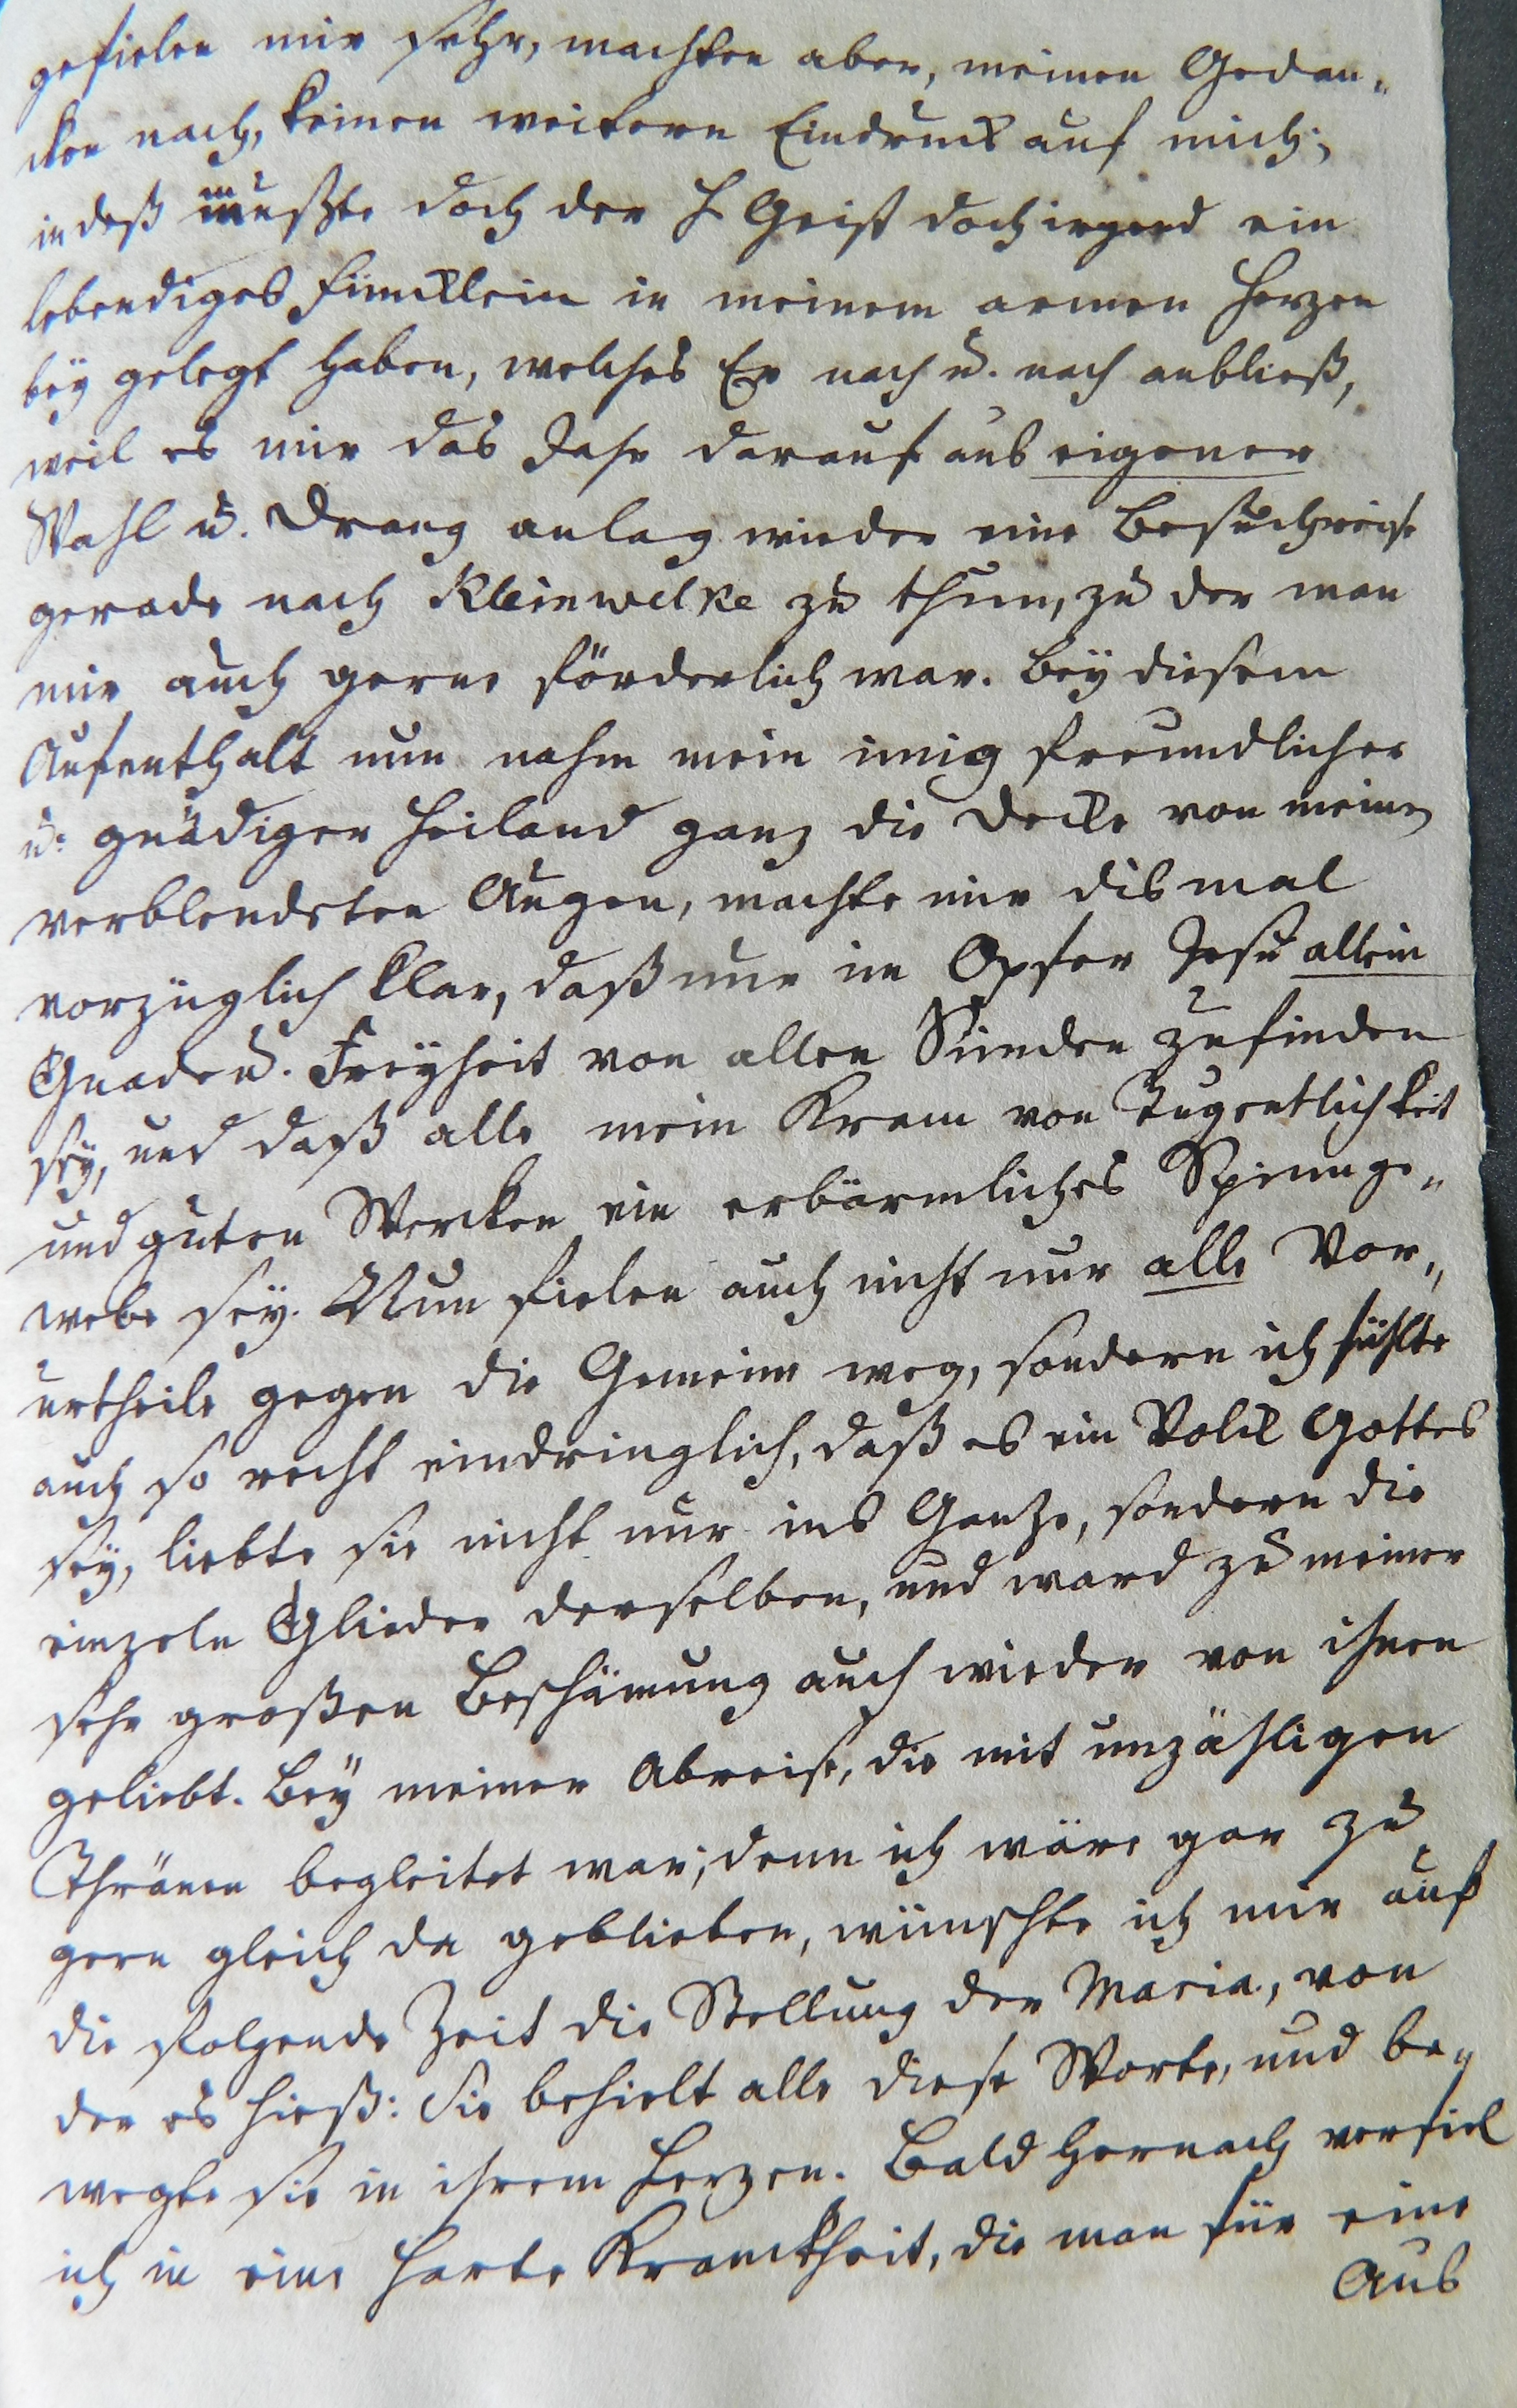 gefielen mir sehr, machten aber, meinen Gedan„
cken nach, keinen weitern Eindruck auf mich;
indeß mußte doch der H Geist doch irgend ein
lebendiges Füncklein in meinem armen Herzen
beÿ gelegt haben, welches Er nach u. nach anbließ,
weil es mir das Jahr darauf aus eigener
Wahl u. Drang anlag wieder eine Besuchreise
gerade nach Kleinwelke zu thun, zu der man
mir auch gerne förderlich war. Beÿ diesem
Aufenthalt nun nahm mein innig freundlicher
u. gnädiger Heiland ganz die Decke von meinen
verblendeten Augen, machte mir dismal
vorzüglich klar, daß nur im Opfer Jesu allein
Gnade u. Freÿheit von allen Sünden zu finden
seÿ, und daß alle mein Kram von Tugentlichkeit
und guten Wercken ein erbärmliches Spinnge„
webe seÿ. Nun fielen auch nicht nur alle Vor„
urtheile gegen die Gemeine weg, sondern ich fühlte
auch so recht eindringlich, daß es ein Volck Gottes
seÿ, liebte sie nicht nur ins Ganze, sondern die
einzeln Glieder derselben, und ward zu meiner
sehr großen Beschämung auch wieder von ihnen
geliebt. Beÿ meiner Abreise, die mit unzähligen
Thränen begleitet war, denn ich wäre gar zu
gern gleich da geblieben, wünschte ich mir auf
die folgende Zeit die Stellung der Maria, von
der es hieß: Sie behielt alle diese Worte, und be„
wegte sie in ihrem Herzen. Bald hernach verfiel
ich in eine harte Kranckheit, die man für eine
Aus